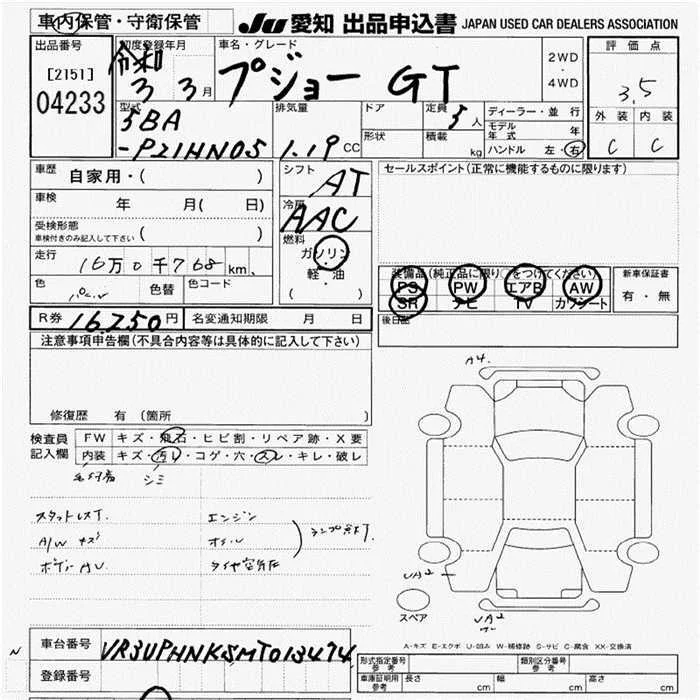 車内保管・守衛保管
JU 愛知 出品申込書 JAPAN USED CAR DEALERS ASSOCIATION
出品番号
[2151]
04233
初度登録年月
令和
3 3月
車名・グレード
プジョー GT
2WD
・
4WD
評価点
3.5
外装 内装
C C
型式
5BA
-P21HN05
排気量
1.19 CC
ドア
定員
5人
形状
積載
kg
ディーラー・並行
モデル年式 年
ハンドル 左・右
車歴
自家用・( )
車検
年 月( 日)
受検形態
車検付きのみ記入して下さい ( )
走行
16万0千768km
色
色替
色コード
シフト
AT
冷房
AAC
燃料
ガソリン
・
軽・油
( )
セールスポイント(正常に機能するものに限ります)
装備品(純正品に限り○をつけてください)
PS PW エアB AW
SR ナビ TV カワシート
新車保証書
有・無
後日品
R券 16,250円
名変通知期限 月 日
注意事項申告欄(不具合内容等は具体的に記入して下さい)
修復歴 有 (箇所
検査員
記入欄
FW キズ・飛石・ヒビ割・リペア跡・X要
内装 キズ・汚レ・コゲ・穴・スレ・キレ・破レ
シミ
スタットレスT.
A/W キズ
エンジン
オイル
タイヤ空気圧
ランプ点灯
A4.
UA2
UA2
スペア
A-キズ E-エクボ U-凹み W-補修跡 S-サビ C-腐食 XX-交換済
N
車台番号
VR3UPHNKSMT013474
登録番号
形式指定番号
参考
類別区分番号
参考
車庫証明用
参考
長さ cm
幅 cm
高さ cm